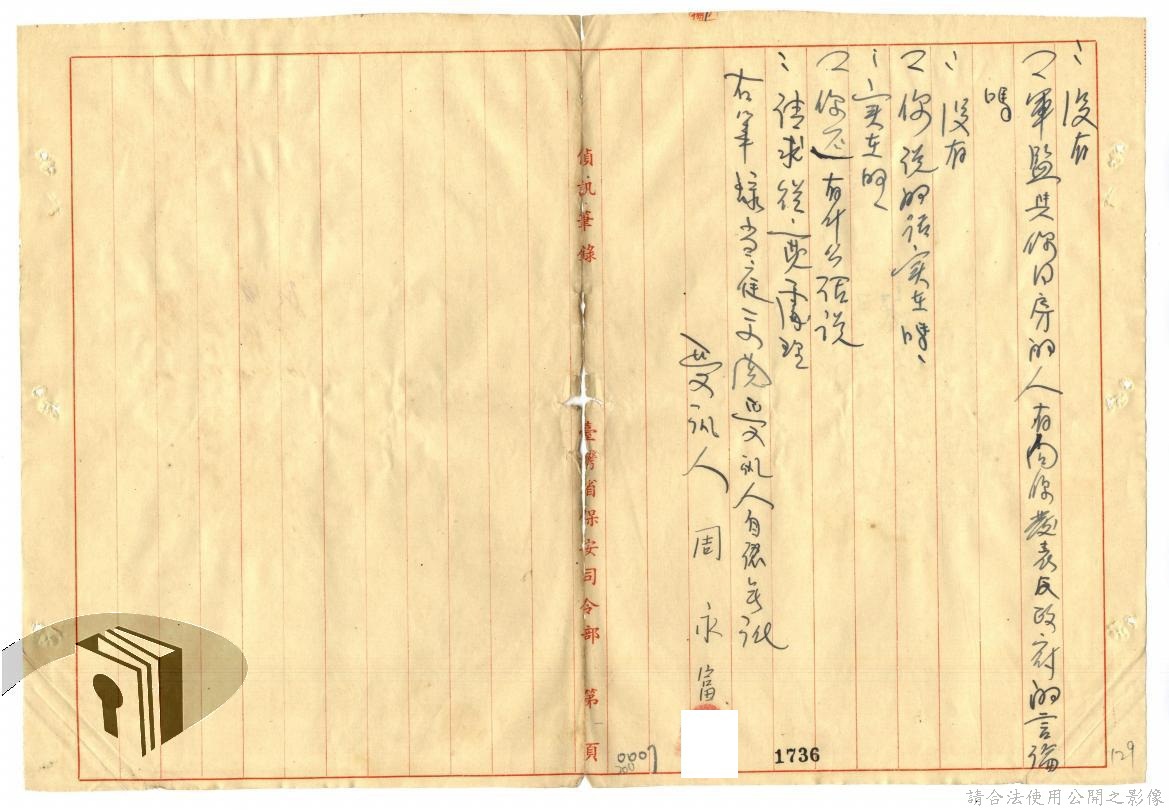 ：沒有
？軍監其你同房的人有向你發表反政府的言論
嗎
：沒有
？你说的话実在嗎、
：実在的、
？你还有什么话说
：请求從寬處理
右筆錄当庭交閱受訊人自認無訛
受訊人 周永富
偵訊筆錄 臺灣省保安司令部 第 頁
1736
0007
129
請合法使用公開之影像